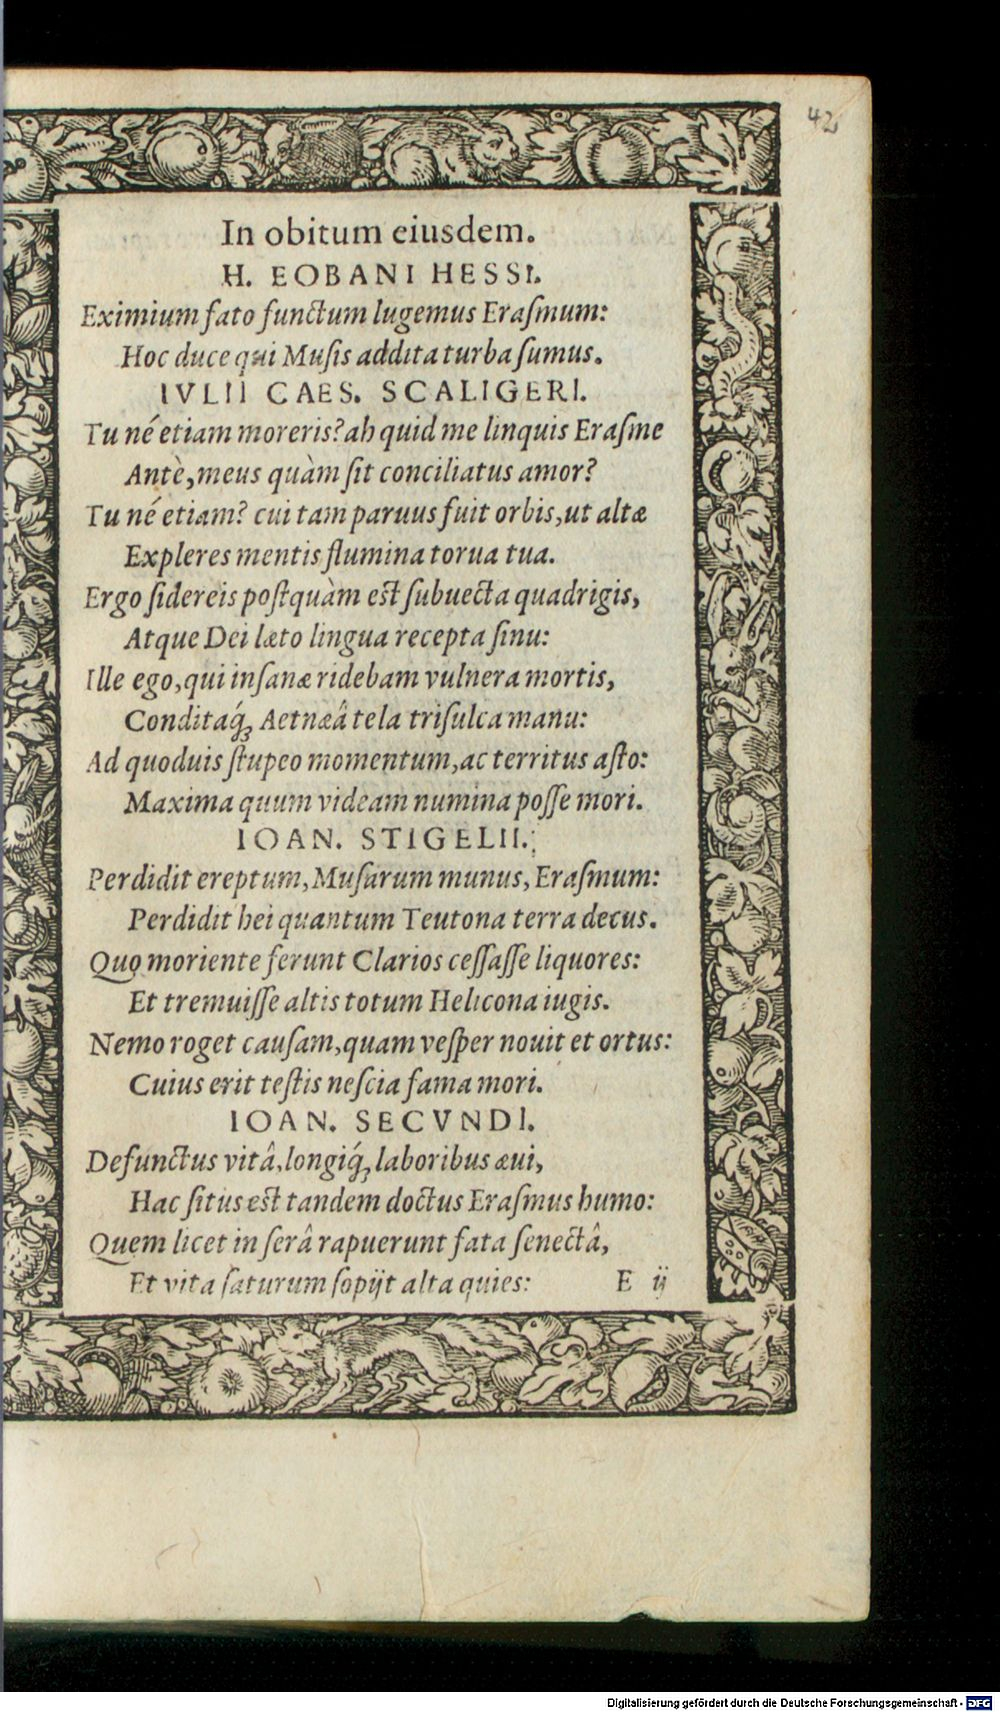 42
In obitum eiusdem.
H. EOBANI HESSI.
Eximium fato functum lugemus Eraſmum:
Hoc duce qui Muſis addita turba ſumus.
IVLII CAES. SCALIGERI.
Tu né etiam moreris? ah quid me linquis Eraſme
Antè, meus quàm ſit conciliatus amor?
Tu né etiam? cui tam paruus fuit orbis, ut altæ
Expleres mentis flumina torua tua.
Ergo ſidereis poſtquàm eſt ſubuecta quadrigis,
Atque Dei læto lingua recepta ſinu:
Ille ego, qui inſanæ ridebam vulnera mortis,
Conditaq́; Aetnæâ tela triſulca manu:
Ad quoduis ſtupeo momentum, ac territus aſto:
Maxima quum videam numina poſſe mori.
IOAN. STIGELII.
Perdidit ereptum, Muſarum munus, Eraſmum:
Perdidit hei quantum Teutona terra decus.
Quo moriente ferunt Clarios ceſſaſſe liquores:
Et tremuiſſe altis totum Helicona iugis.
Nemo roget cauſam, quam veſper nouit et ortus:
Cuius erit teſtis neſcia fama mori.
IOAN. SECVNDI.
Defunctus vitâ, longiq́; laboribus æui,
Hac ſitus eſt tandem doctus Eraſmus humo:
Quem licet in ſerâ rapuerunt fata ſenectâ,
Et vita ſaturum ſopijt alta quies: E ij
Digitalisierung gefördert durch die Deutsche Forschungsgemeinschaft - DFG